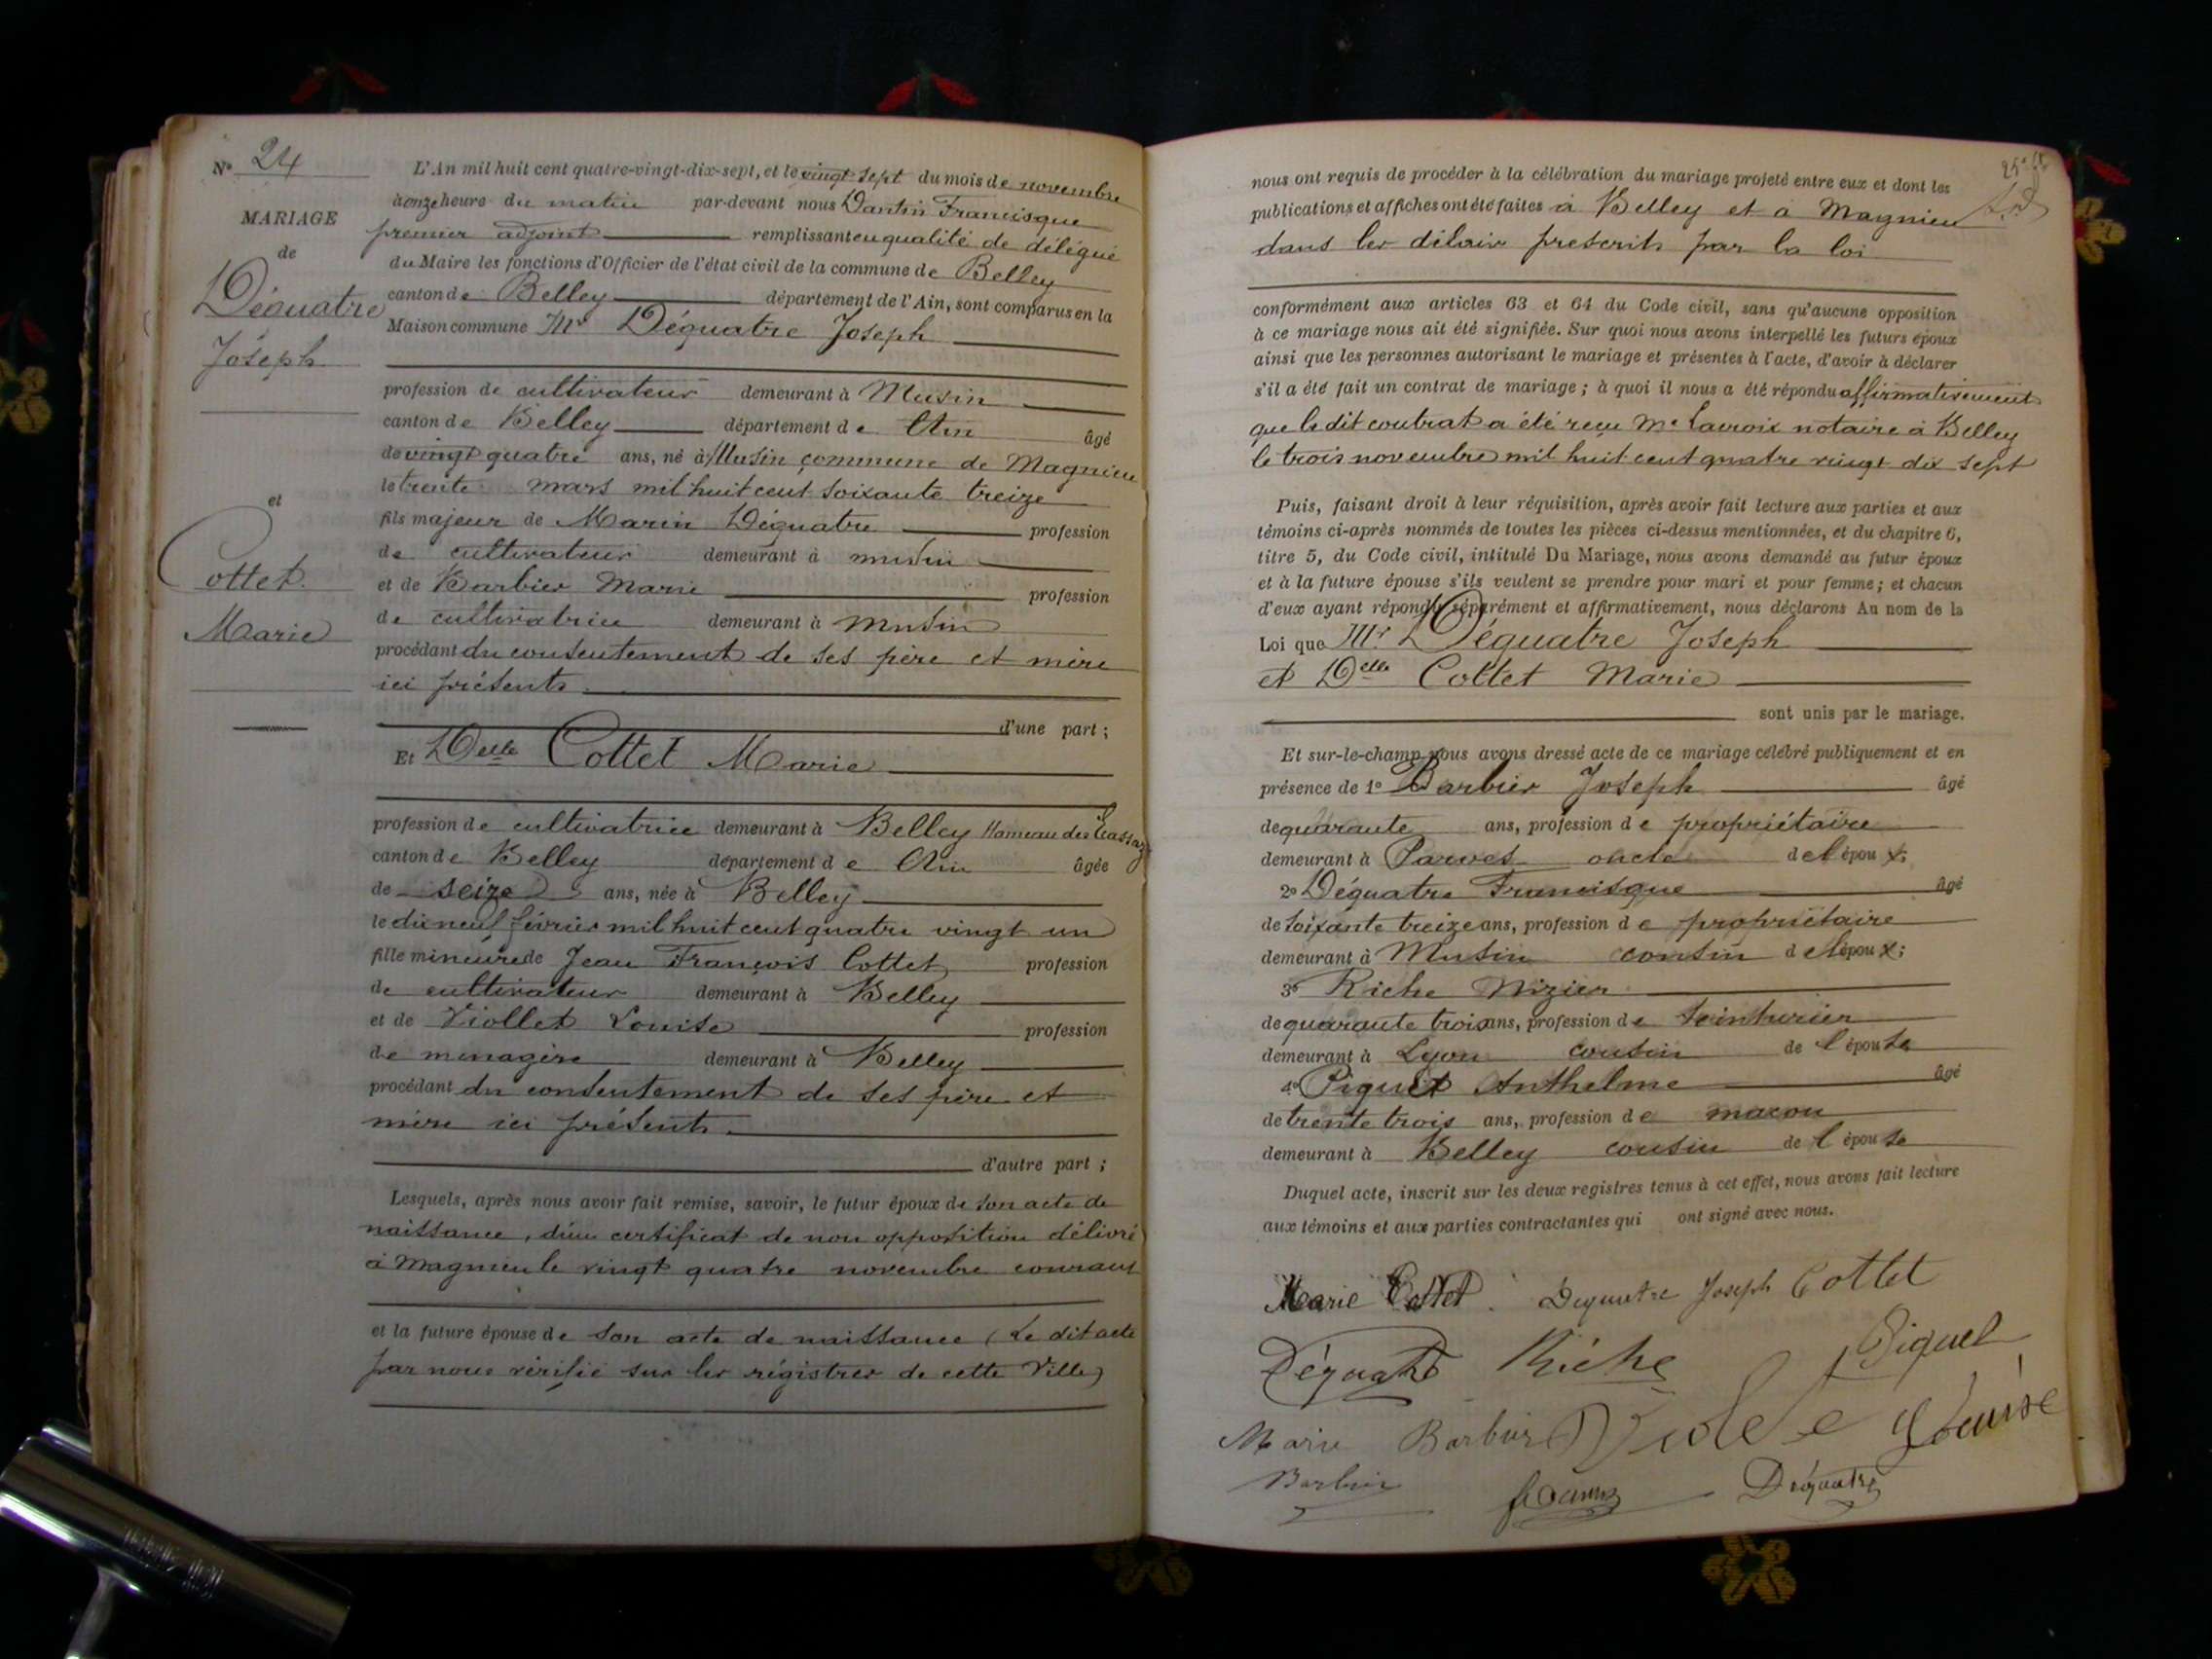 N° 24
MARIAGE
de
Déquatre
Joseph
et
Cottet
Marie
L'An mil huit cent quatre-vingt-dix-sept, et le vingt sept du mois de novembre
à onze heure du matin par-devant nous Dantin Francisque
premier adjoint remplissant en qualité de délégué
du Maire les fonctions d'Officier de l'état civil de la commune de Belley
canton de Belley département de l'Ain, sont comparus en la
Maison commune Mr Déquatre Joseph
profession de cultivateur demeurant à Musin
canton de Belley département de Ain âgé
de vingt quatre ans, né à Musin commune de Magnieu
le trente mars mil huit cent soixante treize
fils majeur de Marin Déquatre profession
de cultivateur demeurant à musin
et de Barbier Marie profession
de cultivatrice demeurant à musin
procédant du consentement de ses père et mère
ici présents
d'une part ;
Et Delle Cottet Marie
profession de cultivatrice demeurant à Belley Hameau des
canton de Belley département de Ain âgée
de seize ans, née à Belley
le dix neuf février mil huit cent quatre vingt un
fille mineure de Jean François Cottet profession
de cultivateur demeurant à Belley
et de Viollet Louise profession
de menagère demeurant à Belley
procédant du consentement de ses père et
mère ici présents.
d'autre part ;
Lesquels, après nous avoir fait remise, savoir, le futur époux de son acte de
naissance, d'un certificat de non opposition délivré
à Magnieu le vingt quatre novembre courant
et la future épouse de son acte de naissance (Le dit acte
par nous vérifié sur les régistres de cette Ville)
nous ont requis de procéder à la célébration du mariage projeté entre eux et dont les
publications et affiches ont été faites à Belley et à Magnieu
dans les délais prescrits par la loi
conformément aux articles 63 et 64 du Code civil, sans qu'aucune opposition
à ce mariage nous ait été signifiée. Sur quoi nous avons interpellé les futurs époux
ainsi que les personnes autorisant le mariage et présentes à l'acte, d'avoir à déclarer
s'il a été fait un contrat de mariage ; à quoi il nous a été répondu affirmativement
que le dit contrat a été reçu Me Lacroix notaire à Belley
le trois novembre mil huit cent quatre vingt dix sept
Puis, faisant droit à leur réquisition, après avoir fait lecture aux parties et aux
témoins ci-après nommés de toutes les pièces ci-dessus mentionnées, et du chapitre 6,
titre 5, du Code civil, intitulé Du Mariage, nous avons demandé au futur époux
et à la future épouse s'ils veulent se prendre pour mari et pour femme ; et chacun
d'eux ayant répondu séparément et affirmativement, nous déclarons Au nom de la
Loi que Mr. Déquatre Joseph
et Delle Cottet Marie
sont unis par le mariage.
Et sur-le-champ nous avons dressé acte de ce mariage célébré publiquement et en
présence de 1° Barbier Joseph âgé
de quarante ans, profession de propriétaire
demeurant à Parves oncle de l'époux ;
2° Déquatre Francisque âgé
de soixante treize ans, profession de propriétaire
demeurant à Musin cousin de l'époux ;
3° Riche Nizier
de quarante trois ans, profession de teinturier
demeurant à Lyon cousin de l'épouse
4° Piguet Anthelme âgé
de trente trois ans, profession de macon
demeurant à Belley cousin de l'épouse
Duquel acte, inscrit sur les deux registres tenus à cet effet, nous avons fait lecture
aux témoins et aux parties contractantes qui ont signé avec nous.
Marie Cottet. Dequatre Joseph Cottet
Déquatre Riche Piguet
Marie Barbier Louise
Barbier Déquatre